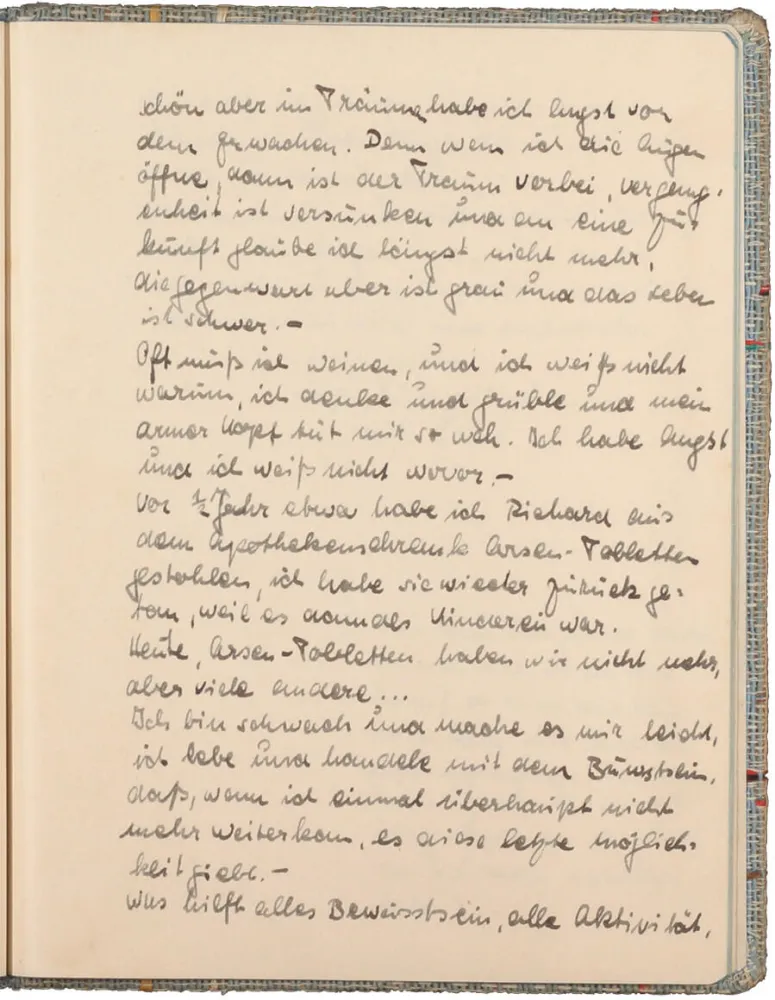 schön aber im Traüme habe ich Angst vor
dem Erwachen. Denn wenn ich die Augen
öffne, dann ist der Traum vorbei, vergang-
enheit ist versunken und an eine Zu-
kunft glaube ich längst nicht mehr,
die gegenwart aber ist grau und das Leben
ist schwer. –
Oft muß ich weinen, und ich weiß nicht
warum, ich denke und grüble und mein
armer Kopf tut mir so weh. Ich habe Angst
und ich weiß nicht wovor. –
Vor ½ Jahr etwa habe ich Richard aus
dem Apothekenschrank Arsen-Tabletten
gestohlen, ich habe sie wieder zurück ge-
tan, weil es damals Kinderei war.
Heute, Arsen-Tabletten haben wir nicht mehr,
aber viele andere...
Ich bin schwach und mache es mir leicht,
ich lebe und handele mit dem Buwstsein,
daß, wenn ich einmal überhaupt nicht
mehr weiterkann, es diese letzte möglich-
keit giebt. –
Was hilft alles Bewusstsein, alle Aktivität,